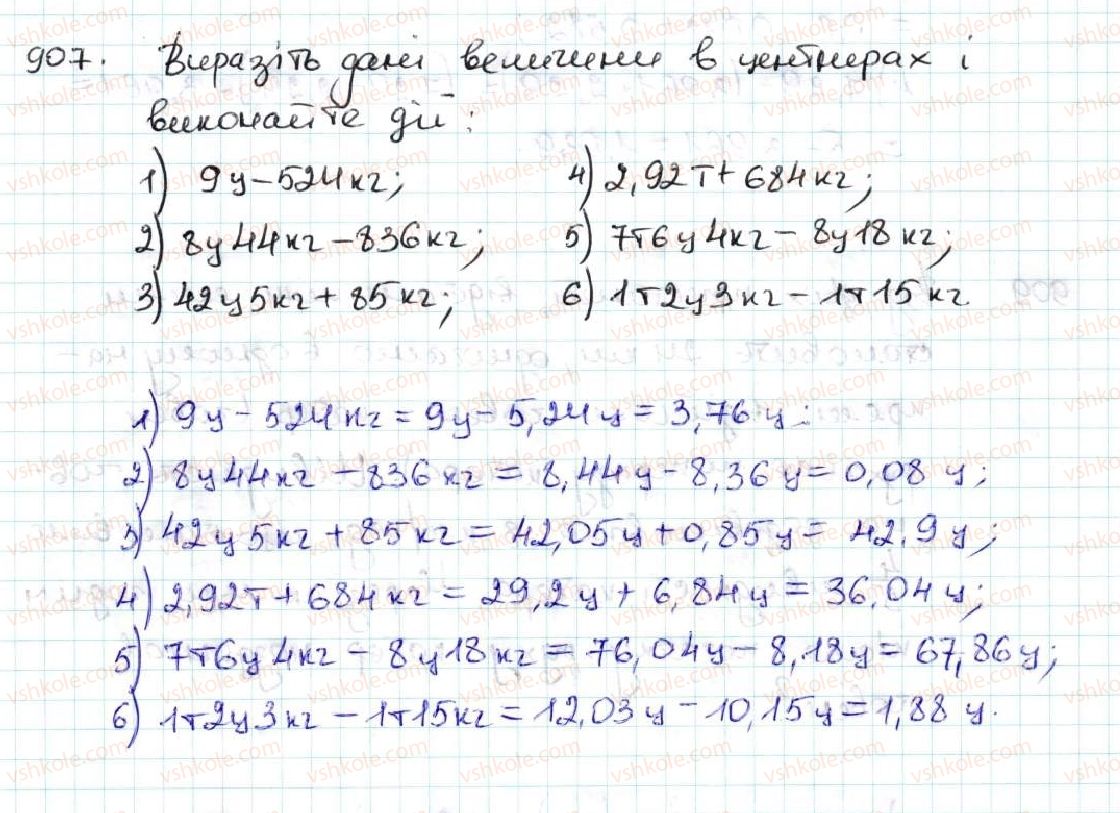 907. Виразіть дані величини в центнерах і
виконайте дії:
1) 9ц-524кг; 4) 2,92т+684кг;
2) 8ц44кг-836кг; 5) 7т6ц4кг-8ц18кг;
3) 42ц5кг+85кг; 6) 1т2ц3кг-1т15кг.
1) 9ц-524кг=9ц-5,24ц=3,76ц;
2) 8ц44кг-836кг=8,44ц-8,36ц=0,08 ц;
3) 42ц5кг+85кг=42,05ц+0,85ц= 42,9ц;
4) 2,92т+684кг=29,2ц+6,84ц=36,04ц;
5) 7т6ц4кг-8ц18кг=76,04ц-8,18ц=67,86ц;
6) 1т2ц3кг-1т15кг=12,03ц-10,15ц=1,88 ц.